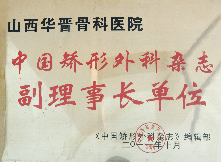 山西华晋骨科医院
中国矫形外科杂志
副理事长单位
《中国矫形外科杂志》编辑部